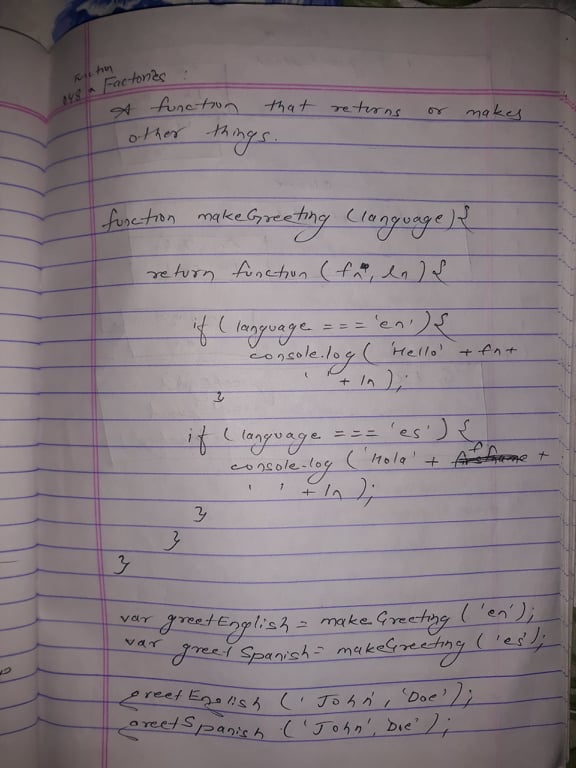 Function
048 Factories :
A function that returns or makes
other things.
function makeGreeting (language){
return function ( fn, ln ) {
if ( language === 'en' ) {
console.log ( 'Hello' + fn +
' ' + ln );
}
if ( language === 'es' ) {
console.log ( 'Hola' + f +
' ' + ln );
}
}
}
var greetEnglish = makeGreeting ( 'en' );
var greetSpanish = makeGreeting ( 'es' );
greetEnglish ( 'John', 'Doe' );
greetSpanish ( 'John', Doe' );